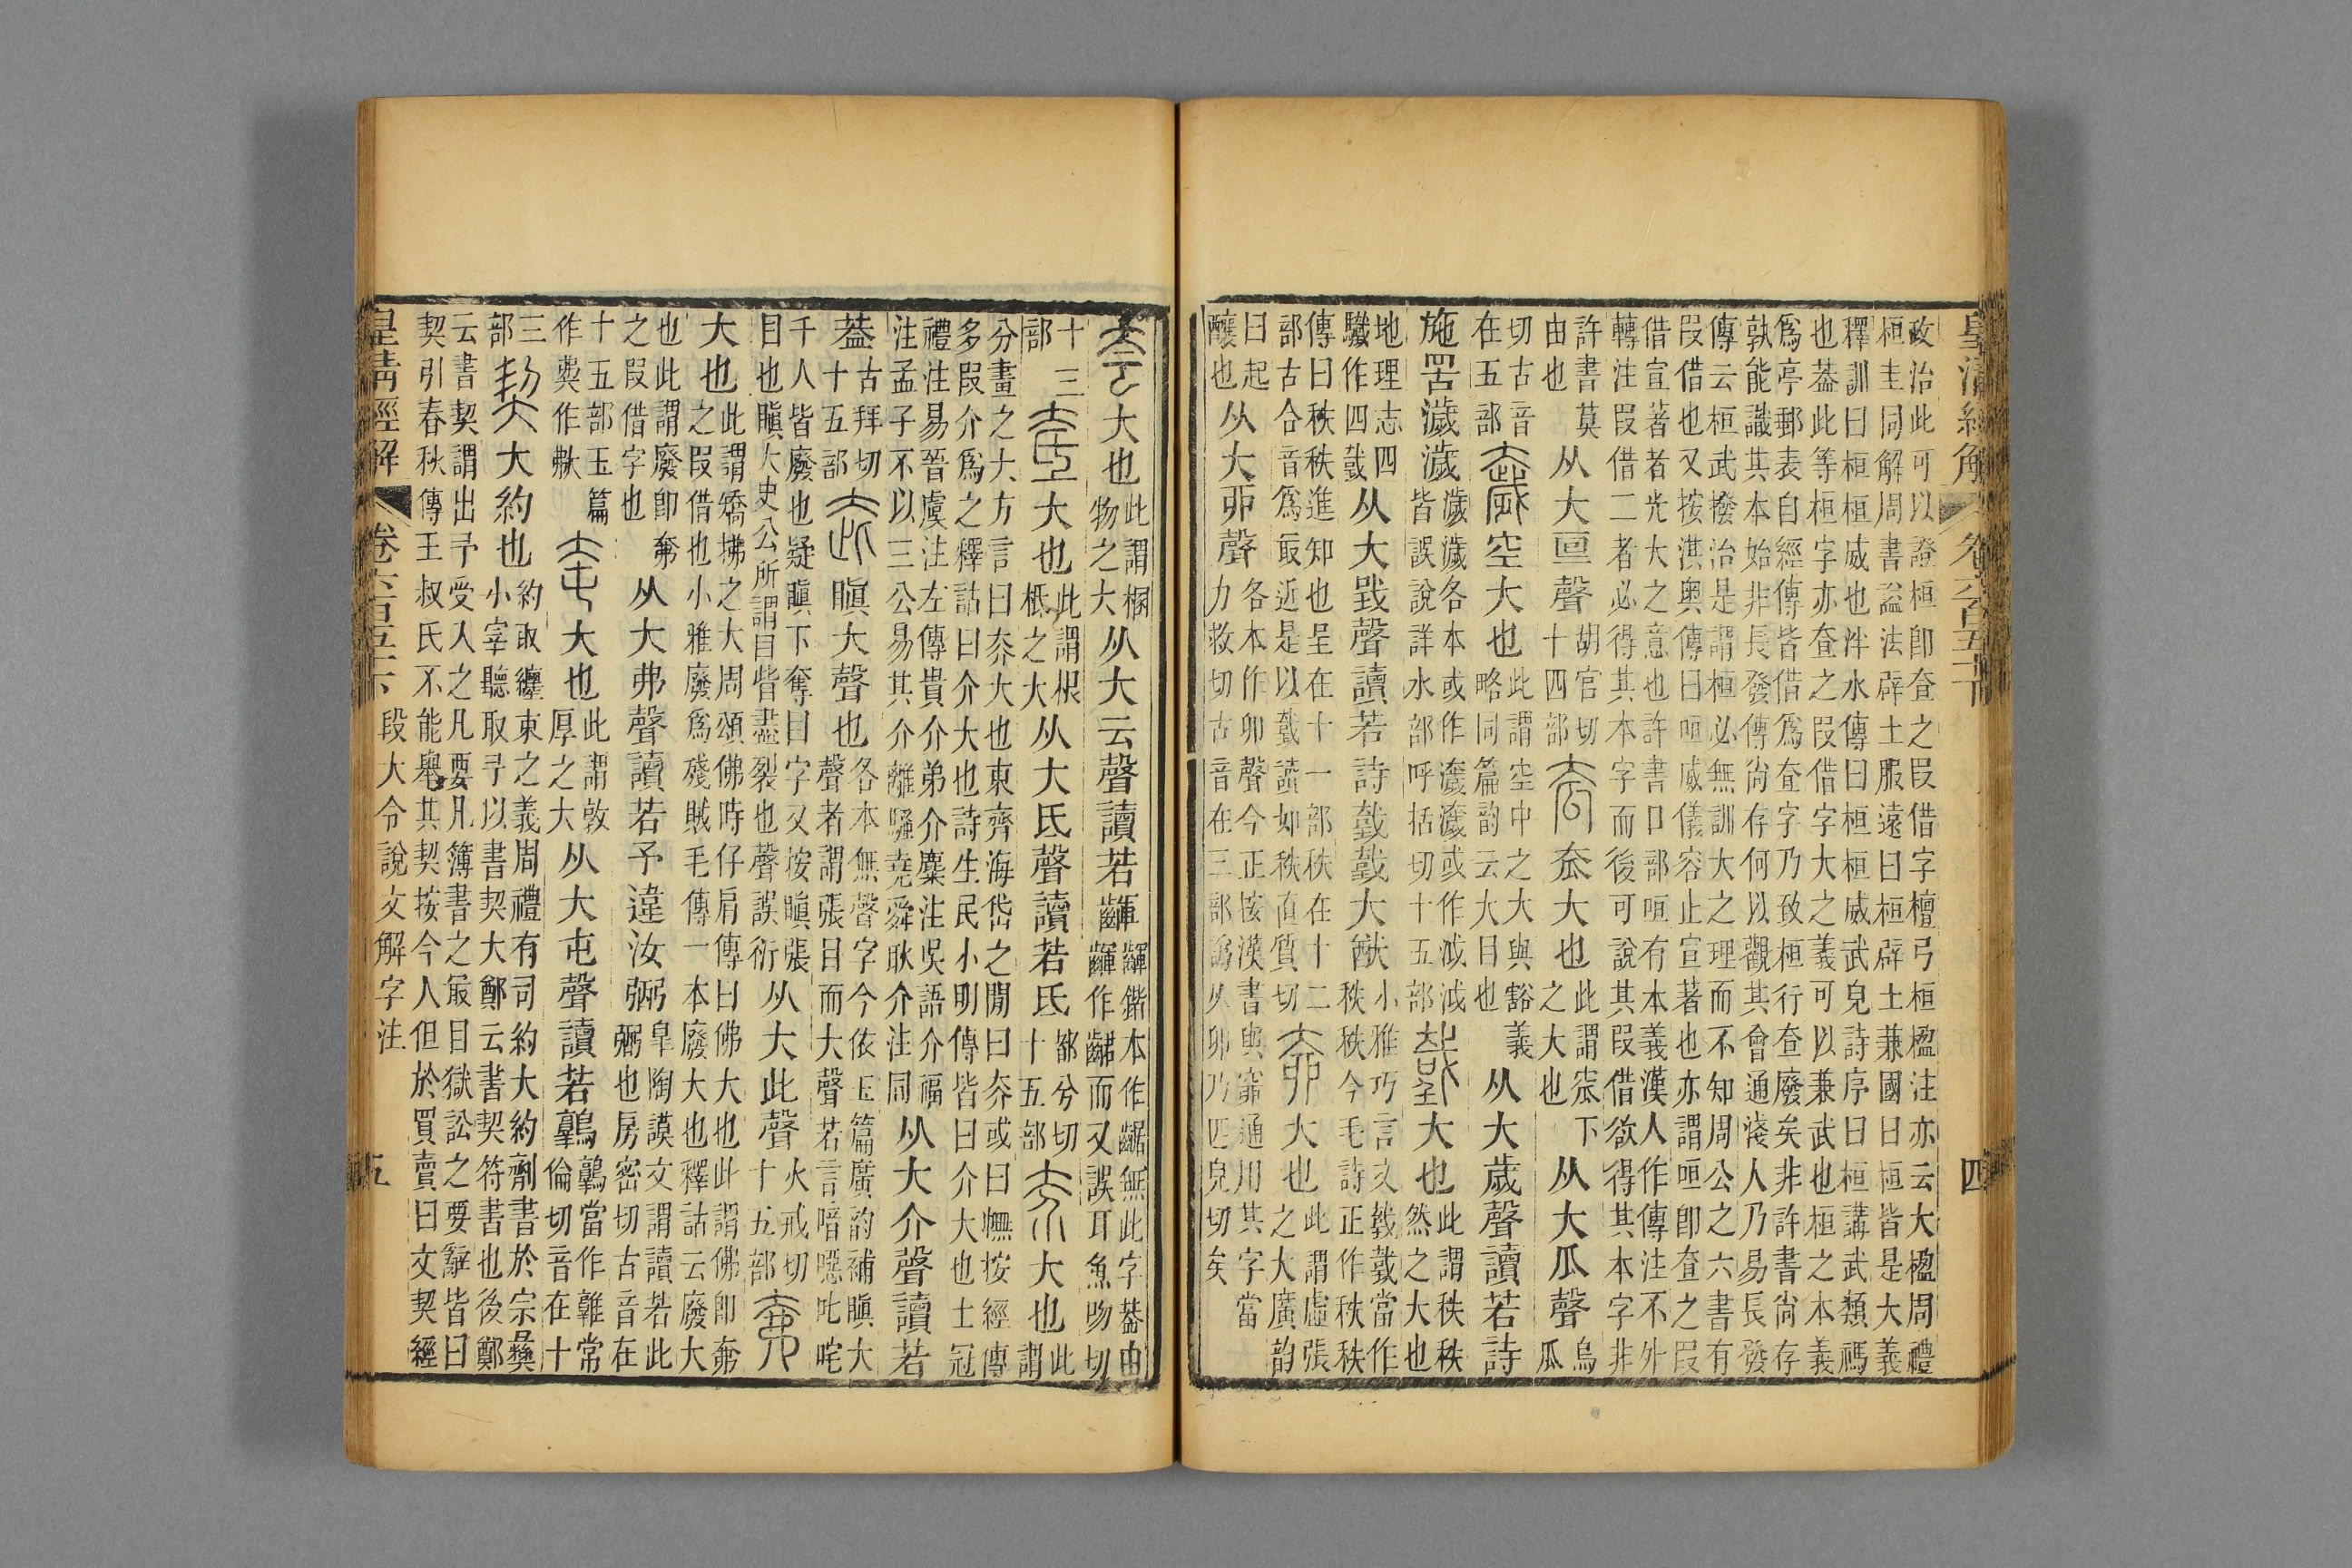 皇清經解 卷六百五十下 四
政治此可以證桓卽奆之叚借字檀弓桓楹注亦云大楹周禮
桓圭同解周書謚法辟土服遠曰桓辟土兼國曰桓皆是大義
釋訓曰桓桓威也泮水傳曰桓桓威武皃詩序曰桓講武類禡
也葢此等桓字亦奆之叚借字大之義可以兼武也桓之本義
爲亭郵表自經傳皆借爲奆字乃致桓行奆廢矣非許書尙存
孰能識其本始非長發傳尙存何以觀其會通淺人乃易長發
傳云桓武撥治是謂桓必無訓大之理而不知周公之六書有
叚借也又按淇奥傳曰咺威儀容止宣著也亦謂咺卽奆之叚
借宣著者光大之意也許書口部咺有本義漢人作傳注不外
轉注叚借二者必得其本字而後可說其叚借欲得其本字非
許書莫由也从大亘聲胡官切十四部大也此謂窊下之大也从大瓜聲烏瓜
切古音在五部空大也此謂空中之大與豁義略同篇韵云大目也从大歲聲讀若詩
施罟濊濊濊濊各本或作濊濊或作泧泧皆誤說詳水部呼括切十五部大也此謂秩秩然之大也
地理志四驖作四𢧜从大𢧜聲讀若詩𢧜𢧜大猷小雅巧言文𢧜𢧜當作秩秩今毛詩正作秩秩
傳曰秩秩進知也呈在十一部秩在十二部古合音爲㝡近是以𢧜讀如秩直質切大也此謂虛張之大廣韵
曰起釀也从大丣聲各本作卯聲今正按漢書與窌通用其字當从卯乃匹皃切矣力救切古音在三部
大也此謂榍物之大从大云聲讀若齳齳鍇本作齫無此字葢由齳作齂而又誤耳魚吻切
十三部大也此謂根柢之大从大氐聲讀若氐都兮切十五部大也此謂
分畫之大方言曰夰大也東齊海岱之閒曰夰或曰幠按經傳
多叚介爲之釋詁曰介大也詩生民小明傳皆曰介大也士冠
禮注易晉虞注左傳貴介弟介麋注吳語介福
注孟子不以三公易其介離騷堯舜耿介注同从大介聲讀若
葢古拜切十五部瞋大聲也各本無聲字今依玉篇廣韵補瞋大聲者謂張目而大聲若言喑噁叱咤
千人皆廢也疑瞋下奪目字又按瞋張目也瞋大史公所謂目眥盡裂也聲誤衍从大此聲火戒切十五部
大也此謂矯拂之大周頌佛時仔肩傳曰佛大也此謂佛卽奜之叚借也小雅廢爲殘賊毛傳一本廢大也釋詁云廢大
也此謂廢卽奜之叚借字也从大弗聲讀若予違汝弼皐陶謨文謂讀若此弼也房密切古音在
十五部玉篇作奜作㪍大也此謂敦厚之大从大屯聲讀若鶉鶉當作雜常倫切音在十
三部大約也約取纏束之義周禮有司約大約劑書於宗彝小宰聽取予以書契大鄭云書契符書也後鄭
云書契謂出予受入之凡要凡簿書之㝡目獄訟之要辭皆曰
契引春秋傳王叔氏不能舉其契按今人但於買賣曰文契經
皇淸經解 卷六百五十下 段大令說文解字注 五